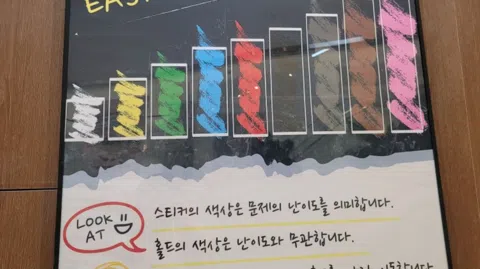 EAS
LOOK AT
스티커의 색상은 문제의 난이도를 의미합니다.
홀드의 색상은 난이도와 무관합니다.